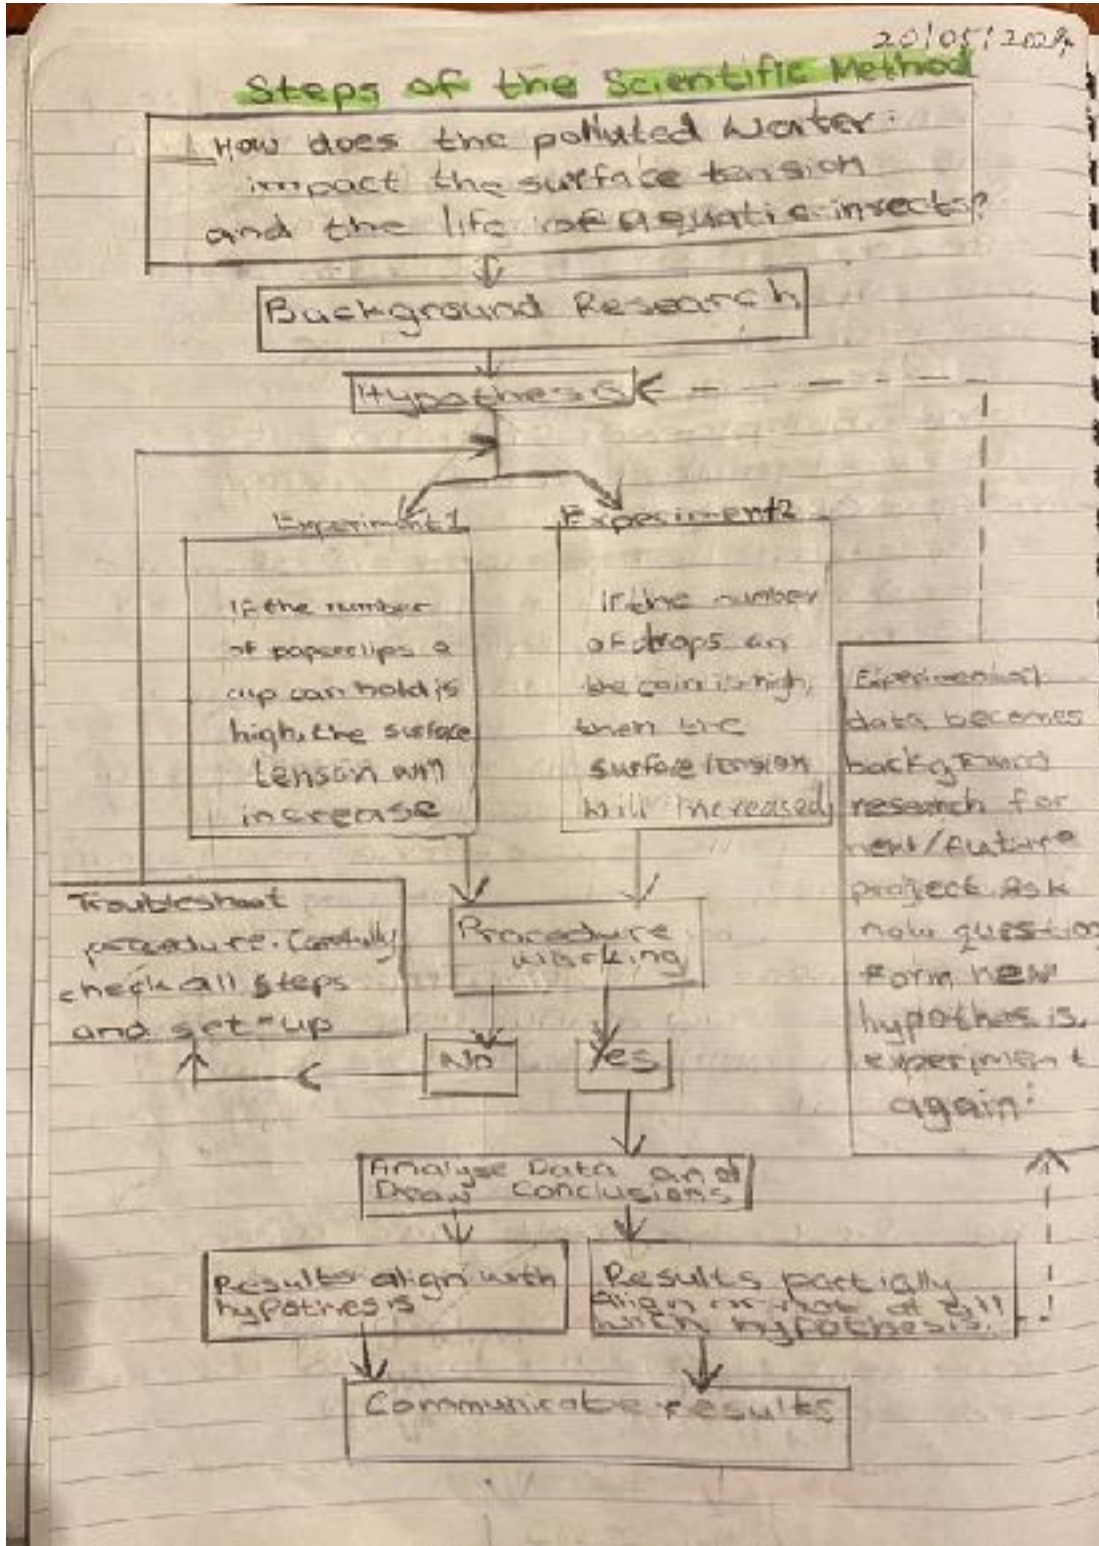 20/05/2024
Steps of the Scientific Method
How does the polluted water
impact the surface tension
and the life of aquatic insects?
Background Research
Hypothesis
Experiment 1
If the number
of paperclips a
cup can hold is
high, the surface
tenson will
increase
Experiment2
If the number
of drops on
the coin is high,
then the
surface tension
will increased
Experimental
data becomes
background
research for
next/future
project. Ask
new question
Form new
hypothesis,
experiment
again.
Troubleshoot
procedure. Carefully
check all steps
and set-up
Procedure
working
No
Yes
Analyse Data and
Draw Conclusions
Results align with
hypothesis
Results partially
align or not at all
with hypothesis.
Communicate results